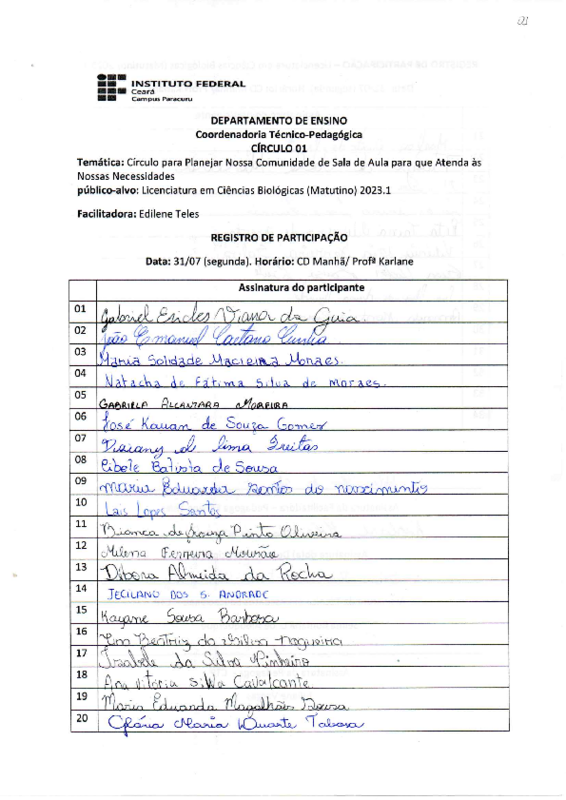 01
INSTITUTO FEDERAL
Ceará
Campus Paracuru
DEPARTAMENTO DE ENSINO
Coordenadoria Técnico-Pedagógica
CÍRCULO 01
Temática: Círculo para Planejar Nossa Comunidade de Sala de Aula para que Atenda às
Nossas Necessidades
público-alvo: Licenciatura em Ciências Biológicas (Matutino) 2023.1
Facilitadora: Edilene Teles
REGISTRO DE PARTICIPAÇÃO
Data: 31/07 (segunda). Horário: CD Manhã/ Profª Karlane
Assinatura do participante
01 Gabriel Viana da Guia
02 João Emanuel Caetano Cunha
03 Maria Solidade Macieira Moraes.
04 Natacha de Fátima Silva de moraes.
05 GABRIELA ALCANTARA MOREIRA
06 José Kauan de Souza Gomes
07 de lima Freitas
08 Cibele Batista de Sousa
09 Maria Eduarda Santos do nascimento
10 Lais Lopes Santos
11 Bianca de Souza Pinto Oliveira
12 Milena Ferreira Mourão
13 Débora Almeida da Rocha
14 JECILANO DOS S. ANDRADE
15 Kayane Sousa Barbosa
16 Beatriz da Silva Nogueira
17 Izabele da Silva Pinheiro
18 Ana Vitória Silva Cavalcante
19 Maria Eduarda Magalhães Sousa
20 Glória Maria Duarte Tabosa